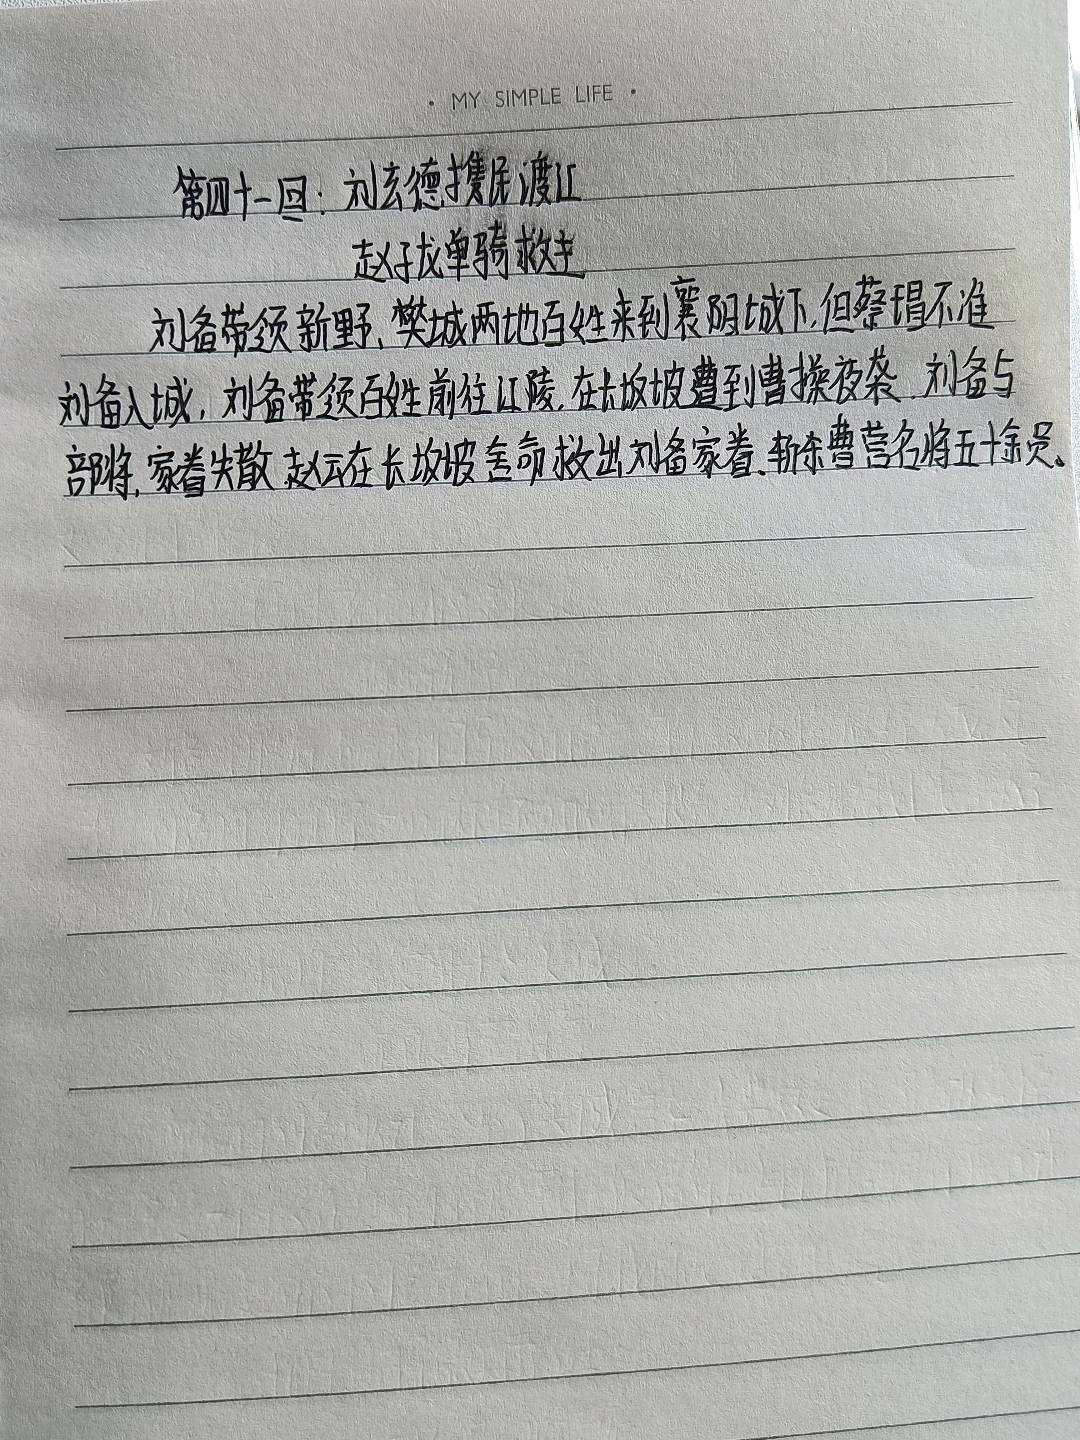 · MY SIMPLE LIFE ·
第四十一回：刘玄德携民渡江
赵子龙单骑救主
刘备带领新野、樊城两地百姓来到襄阳城下,但蔡瑁不准
刘备入城，刘备带领百姓前往江陵,在长坂坡遭到曹操夜袭.刘备与
部将,家眷失散 赵云在长坂坡舍命救出刘备家眷、斩杀曹营名将五十余员。